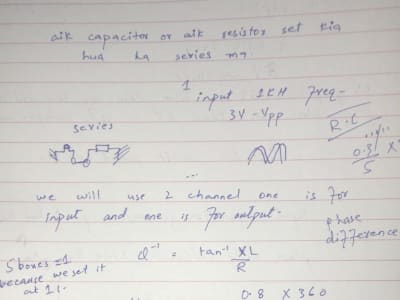 aik capacitor or aik resistor set kia
hua ha series mn
1
input 1KH freq-
3V - Vpp
R.C
series
0.3
5
we will use 2 channel one is for
input and one is for output.
phase
difference
5 boxes = 1
because we set it
at 1
Q⁻¹ = tan⁻¹ XL
R
0.8 X 360